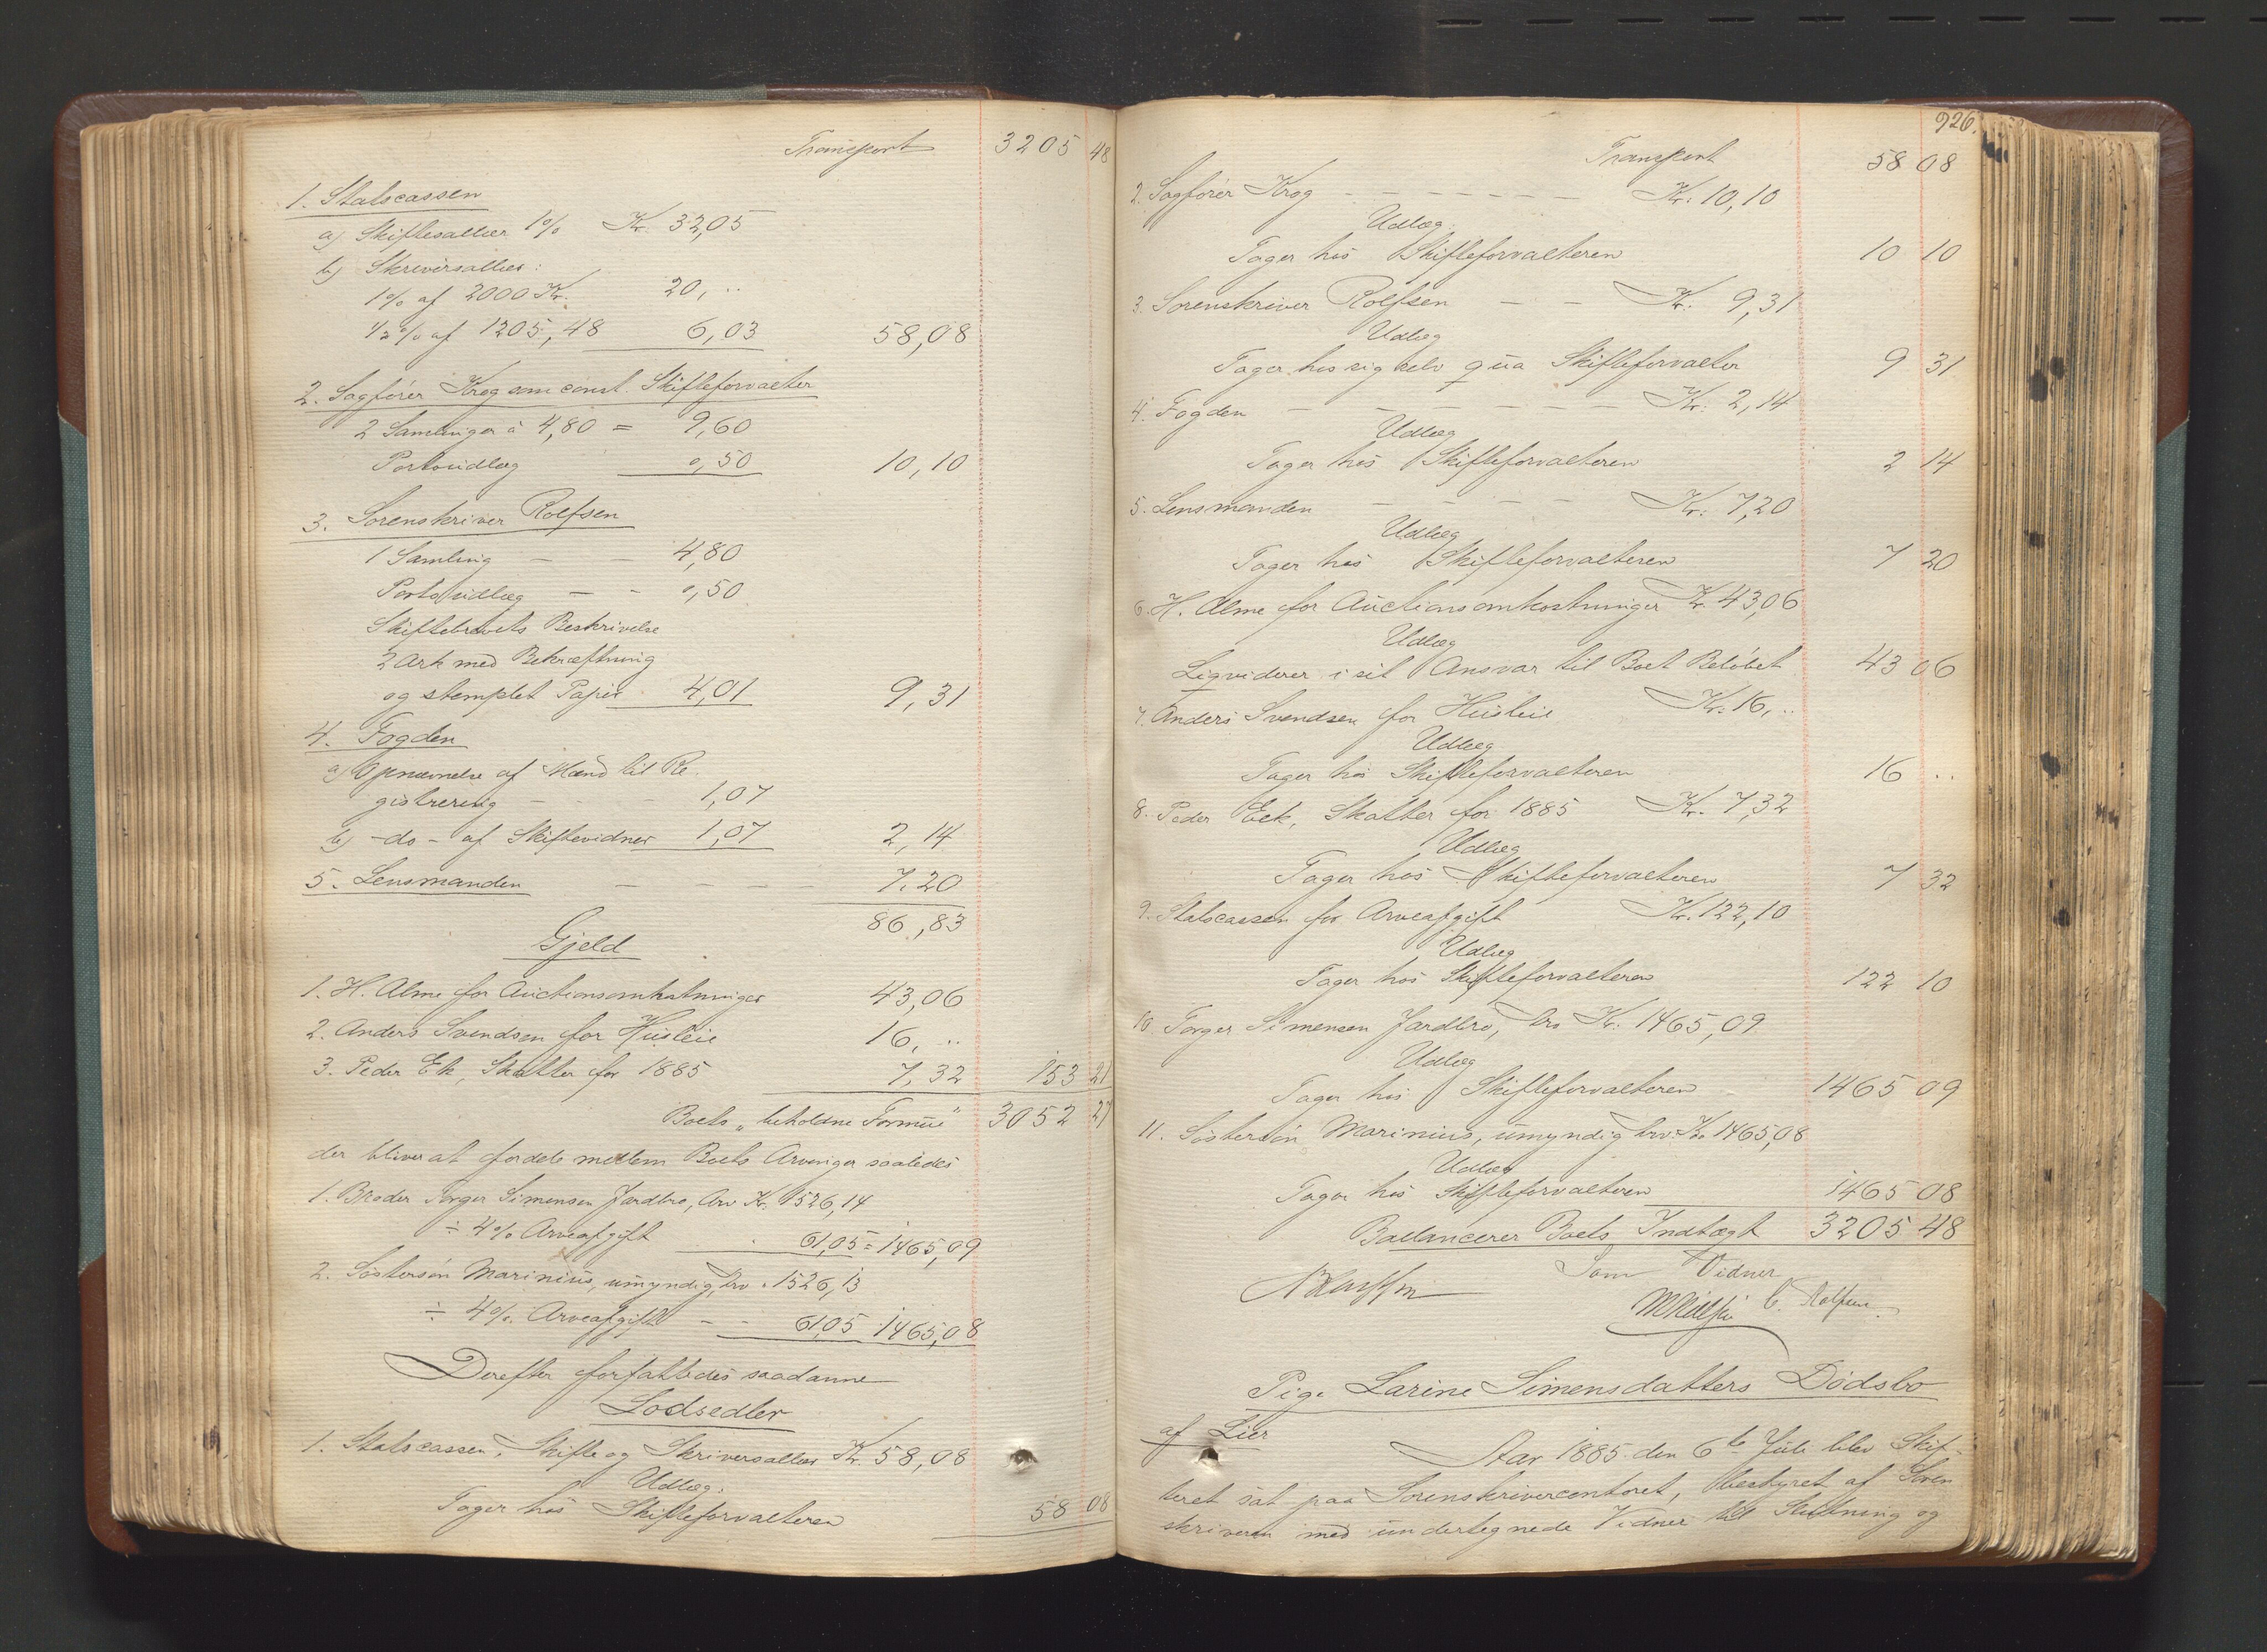 Transport 3205 48
1. Statscassen
a) Skiftesallær 1% Kr. 32,05
b) Skriversallær:
1% af 2000 Kr. 20, ..
1/2% af 1205,48 6,03 58,08
2. Sagfører Krog som const. Skifteforvalter
2 Samlinger à 4,80 = 9,60
Portoudlæg 0,50 10,10
3. Sorenskriver Rolfsen
1 Samling — — 4,80
Portoudlæg — - 0,50
Skiftebrevets Beskrivelse
2 Ark med Bekræftning
og stemplet Papir 4,01 9,31
4. Fogden
a) Opnævnelse af Mænd til Re-
gistrering - - - 1,07
b) -do- af Skiftevidner 1,07 2,14
5. Lensmanden — — — — 7,20
86,83
Gjeld
1. H. Alme for Auctionsomkostninger 43,06
2. Anders Svendsen for Husleie 16, ..
3. Peder Ek, Skatter for 1885 7,32 153 21
Boets "beholdne Formue" 3052 27
der bliver at fordele mellem Boets Arvinger saaledes
1. Broder Torger Simensen Jardbro, Arv Kr. 1526,14
÷ 4% Arveafgift 61,05 = 1465,09
2. Søstersøn Marinius, umyndig, Arv " 1526,13
÷ 4% Arveafgift - - 61,05 1465,08
Derefter forfattedes saadanne
Lodsedler
1. Statscassen, Skifte og Skriversallær Kr. 58,08
Udlæg:
Tager hos Skifteforvalteren 58 08
926.
Transport 58 08
2. Sagfører Krog - - - - - - - Kr. 10,10
Udlæg
Tager hos Skifteforvalteren 10 10
3. Sorenskriver Rolfsen — — Kr. 9,31
Udlæg
Tager hos sig selv qua Skifteforvalter 9 31
4. Fogden — — — — — — Kr. 2,14
Udlæg
Tager hos Skifteforvalteren 2 14
5. Lensmanden — — — — Kr. 7,20
Udlæg
Tager hos Skifteforvalteren 7 20
6. H. Alme for Auctionsomkostninger Kr. 43,06
Udlæg
Liqviderer i sit Ansvar til Boet Beløbet 43 06
7. Anders Svendsen for Husleie Kr. 16, ..
Udlæg
Tager hos Skifteforvalteren 16 ..
8. Peder Eek, Skatter for 1885 Kr. 7,32
Udlæg
Tager hos Skifteforvalteren 7 32
9. Statscassen for Arveafgift Kr. 122,10
Udlæg
Tager hos Skifteforvalteren 122 10
10 Torger Simensen Jardbro, Arv Kr. 1465,09
Udlæg
Tager hos Skifteforvalteren 1465 09
11. Søstersøn Marinius, umyndig Arv Kr. 1465,08
Udlæg
Tager hos Skifteforvalteren 1465 08
Ballancerer Boets Indtægt 3205 48
Som Vidner
C. Rolfsen
Pige Larine Simensdatters Dødsbo
af Lier
Aar 1885 den 6te Juli blev Skif-
teret sat paa Sorenskrivercontoret, bestyret af Soren
skriveren med undertegnede Vidner til Slutning og